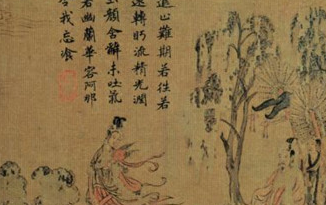 進止難期若往若
還轉眄流精光潤
玉顏含辭未吐氣
若幽蘭華容阿那
令我忘飡